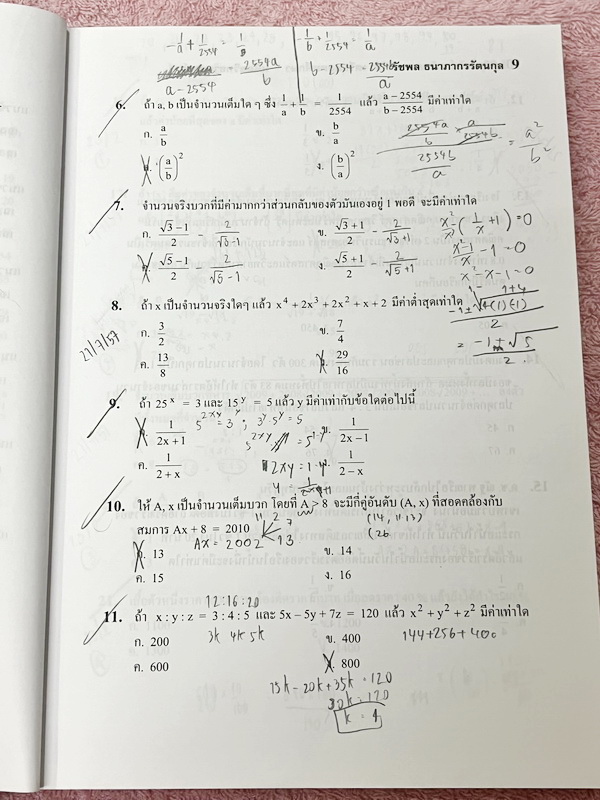 -1/a + 1/2554 = 1/b
-1/b + 1/2554 = 1/a
a-2554 = 2554a/b
b-2554 = 2554b/a
รัชพล ธนาภากรรัตนกุล 9
6. ถ้า a, b เป็นจำนวนเต็มใด ๆ ซึ่ง 1/a + 1/b = 1/2554 แล้ว (a − 2554)/(b − 2554) มีค่าเท่าใด
ก. a/b ข. b/a
(a/b)² ง. (b/a)²
2554a/b × a/2554b = a²/b²
2554b/a
7. จำนวนจริงบวกที่มีค่ามากกว่าส่วนกลับของตัวมันเองอยู่ 1 พอดี จะมีค่าเท่าใด
ก. (√3 − 1)/2 - 2/(√3-1) ข. (√3 + 1)/2 - 2/(√3+1)
(√5 − 1)/2 - 2/(√5-1) ง. (√5 + 1)/2 - 2/(√5+1)
(1/x + 1) = 0
x²-1/x - 1 = 0
x²-x-1 = 0
8. ถ้า x เป็นจำนวนจริงใดๆ แล้ว x⁴ + 2x³ + 2x² + x + 2 มีค่าต่ำสุดเท่าใด
ก. 3/2 ข. 7/4
ค. 13/8 29/16
1+4
2
= (-1 ± √5)/2
21/7/57
9. ถ้า 25ˣ = 3 และ 15ʸ = 5 แล้ว y มีค่าเท่ากับข้อใดต่อไปนี้
1/(2x + 1) ข. 1/(2x − 1)
ค. 1/(2 + x) 1/(2 − x)
3ʸ·5ʸ = 5
2xy = 1-y
10. ให้ A, x เป็นจำนวนเต็มบวก โดยที่ A > 8 จะมีกี่คู่อันดับ (A, x) ที่สอดคล้องกับ
สมการ Ax + 8 = 2010
Ax = 2002
11 2 7
13
(14, 11·13)
(26
13 ข. 14
ค. 15 ง. 16
12:16:20
11. ถ้า x : y : z = 3 : 4 : 5 และ 5x − 5y + 7z = 120 แล้ว x² + y² + z² มีค่าเท่าใด
3k 4k 5k
ก. 200 ข. 400
144+256+400
ค. 600 800
15k-20k+35k = 120
30k = 120
k = 4